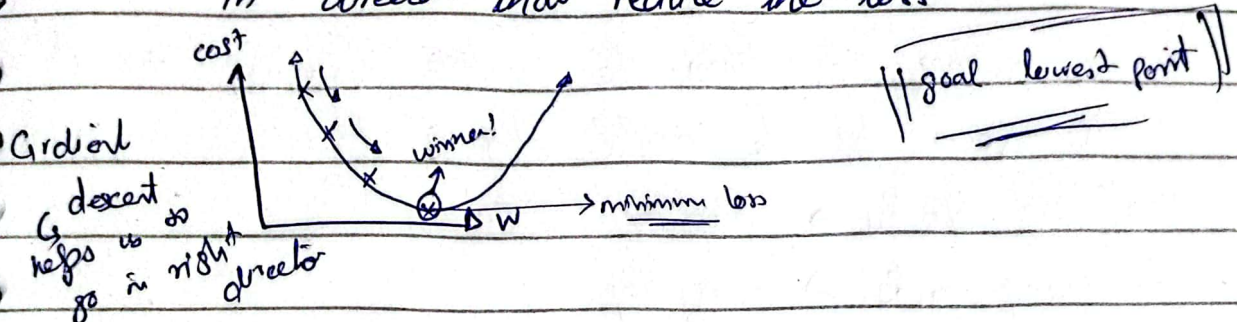 cost
goal lowest point
Grdient
descent
helps us to
go in right
director
winner!
W
minimum loss